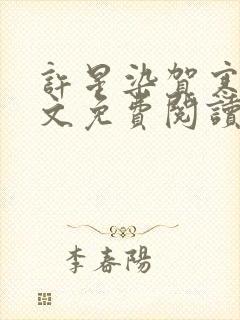 許星染賀寒
文免費閱讀
李春陽